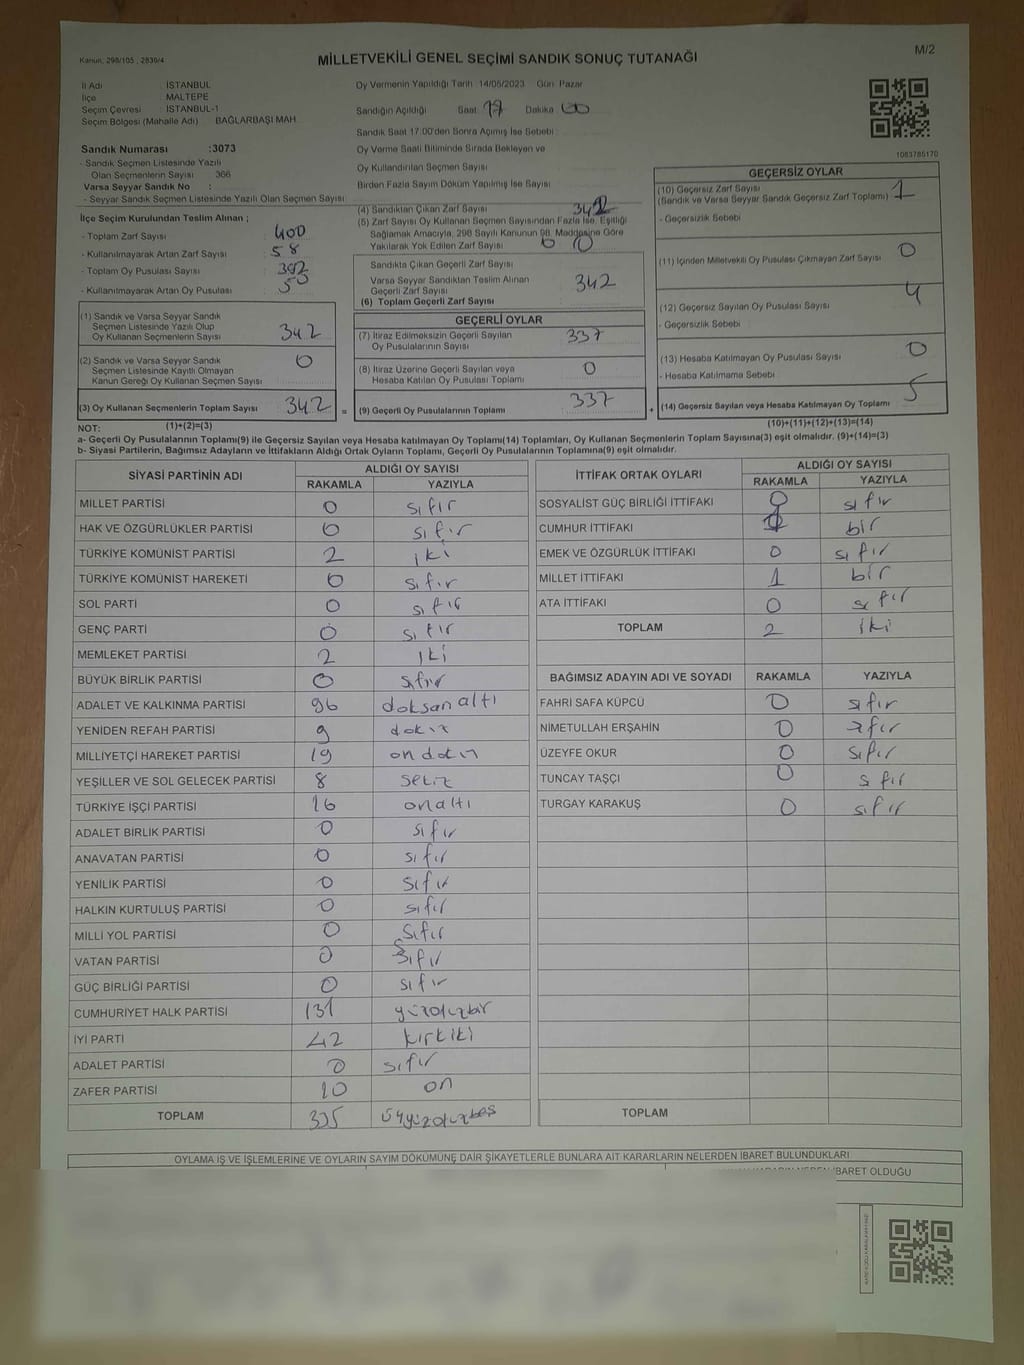 Kanun, 298/105 , 2839/4
MİLLETVEKİLİ GENEL SEÇİMİ SANDIK SONUÇ TUTANAĞI
M/2
İl Adı : İSTANBUL
İlçe : MALTEPE
Seçim Çevresi : İSTANBUL-1
Seçim Bölgesi (Mahalle Adı) BAĞLARBAŞI MAH.
Oy Vermenin Yapıldığı Tarih 14/05/2023 Gün Pazar
Sandığın Açıldığı Saat 17 Dakika 00
Sandık Saat 17:00'den Sonra Açımış İse Sebebi
Sandık Numarası :3073
- Sandık Seçmen Listesinde Yazılı
Olan Seçmenlerin Sayısı 366
Varsa Seyyar Sandık No :
- Seyyar Sandık Seçmen Listesinde Yazılı Olan Seçmen Sayısı
Oy Verme Saati Bitiminde Sırada Bekleyen ve
Oy Kullandırılan Seçmen Sayısı
Birden Fazla Sayım Döküm Yapılmış İse Sayısı
1083785170
İlçe Seçim Kurulundan Teslim Alınan ;
- Toplam Zarf Sayısı 400
- Kullanılmayarak Artan Zarf Sayısı 58
- Toplam Oy Pusulası Sayısı
- Kullanılmayarak Artan Oy Pusulası
(1) Sandık ve Varsa Seyyar Sandık
Seçmen Listesinde Yazılı Olup
Oy Kullanan Seçmenlerin Sayısı 342
(2) Sandık ve Varsa Seyyar Sandık
Seçmen Listesinde Kayıtlı Olmayan
Kanun Gereği Oy Kullanan Seçmen Sayısı 0
(3) Oy Kullanan Seçmenlerin Toplam Sayısı 342 =
(1)+(2)=(3)
(4) Sandıktan Çıkan Zarf Sayısı 342
(5) Zarf Sayısı Oy Kullanan Seçmen Sayısından Fazla İse, Eşitliği
Sağlamak Amacıyla, 298 Sayılı Kanunun 98. Maddesine Göre
Yakılarak Yok Edilen Zarf Sayısı 0
Sandıkta Çıkan Geçerli Zarf Sayısı
Varsa Seyyar Sandıktan Teslim Alınan
Geçerli Zarf Sayısı
(6) Toplam Geçerli Zarf Sayısı 342
GEÇERLİ OYLAR
(7) İtiraz Edilmeksizin Geçerli Sayılan
Oy Pusulalarının Sayısı 337
(8) İtiraz Üzerine Geçerli Sayılan veya
Hesaba Katılan Oy Pusulası Toplamı 0
(9) Geçerli Oy Pusulalarının Toplamı 337 +
GEÇERSİZ OYLAR
(10) Geçersiz Zarf Sayısı
(Sandık ve Varsa Seyyar Sandık Geçersiz Zarf Toplamı) 1
- Geçersizlik Sebebi
(11) İçinden Milletvekili Oy Pusulası Çıkmayan Zarf Sayısı 0
(12) Geçersiz Sayılan Oy Pusulası Sayısı 4
- Geçersizlik Sebebi
(13) Hesaba Katılmayan Oy Pusulası Sayısı 0
- Hesaba Katılmama Sebebi
(14) Geçersiz Sayılan veya Hesaba Katılmayan Oy Toplamı 5
(10)+(11)+(12)+(13)=(14)
NOT:
a- Geçerli Oy Pusulalarının Toplamı(9) ile Geçersiz Sayılan veya Hesaba katılmayan Oy Toplamı(14) Toplamları, Oy Kullanan Seçmenlerin Toplam Sayısına(3) eşit olmalıdır. (9)+(14)=(3)
b- Siyasi Partilerin, Bağımsız Adayların ve İttifakların Aldığı Ortak Oyların Toplamı, Geçerli Oy Pusulalarının Toplamına(9) eşit olmalıdır.
SİYASİ PARTİNİN ADI ALDIĞI OY SAYISI
RAKAMLA YAZIYLA
MİLLET PARTİSİ 0 sıfır
HAK VE ÖZGÜRLÜKLER PARTİSİ 0 sıfır
TÜRKİYE KOMÜNİST PARTİSİ 2 iki
TÜRKİYE KOMÜNİST HAREKETİ 0 sıfır
SOL PARTİ 0 sıfır
GENÇ PARTİ 0 sıfır
MEMLEKET PARTİSİ 2 iki
BÜYÜK BİRLİK PARTİSİ 0 sıfır
ADALET VE KALKINMA PARTİSİ 96 doksan altı
YENİDEN REFAH PARTİSİ 9 dokuz
MİLLİYETÇİ HAREKET PARTİSİ 19 on dokuz
YEŞİLLER VE SOL GELECEK PARTİSİ 8 sekiz
TÜRKİYE İŞÇİ PARTİSİ 16 onaltı
ADALET BİRLİK PARTİSİ 0 sıfır
ANAVATAN PARTİSİ 0 sıfır
YENİLİK PARTİSİ 0 sıfır
HALKIN KURTULUŞ PARTİSİ 0 sıfır
MİLLİ YOL PARTİSİ 0 sıfır
VATAN PARTİSİ 0 sıfır
GÜÇ BİRLİĞİ PARTİSİ 0 sıfır
CUMHURİYET HALK PARTİSİ 131 yüzotuzbir
İYİ PARTİ 42 kırkiki
ADALET PARTİSİ 0 sıfır
ZAFER PARTİSİ 10 on
TOPLAM 335 üçyüzotuzbeş
İTTİFAK ORTAK OYLARI ALDIĞI OY SAYISI
RAKAMLA YAZIYLA
SOSYALİST GÜÇ BİRLİĞİ İTTİFAKI 0 sıfır
CUMHUR İTTİFAKI 1 bir
EMEK VE ÖZGÜRLÜK İTTİFAKI 0 sıfır
MİLLET İTTİFAKI 1 bir
ATA İTTİFAKI 0 sıfır
TOPLAM 2 iki
BAĞIMSIZ ADAYIN ADI VE SOYADI RAKAMLA YAZIYLA
FAHRİ SAFA KÜPCÜ 0 sıfır
NİMETULLAH ERŞAHİN 0 sıfır
ÜZEYFE OKUR 0 sıfır
TUNCAY TAŞÇI 0 sıfır
TURGAY KARAKUŞ 0 sıfır
TOPLAM
OYLAMA İŞ VE İŞLEMLERİNE VE OYLARIN SAYIM DÖKÜMÜNE DAİR ŞİKAYETLERLE BUNLARA AİT KARARLARIN NELERDEN İBARET BULUNDUKLARI
KARARIN NEDEN İBARET OLDUĞU